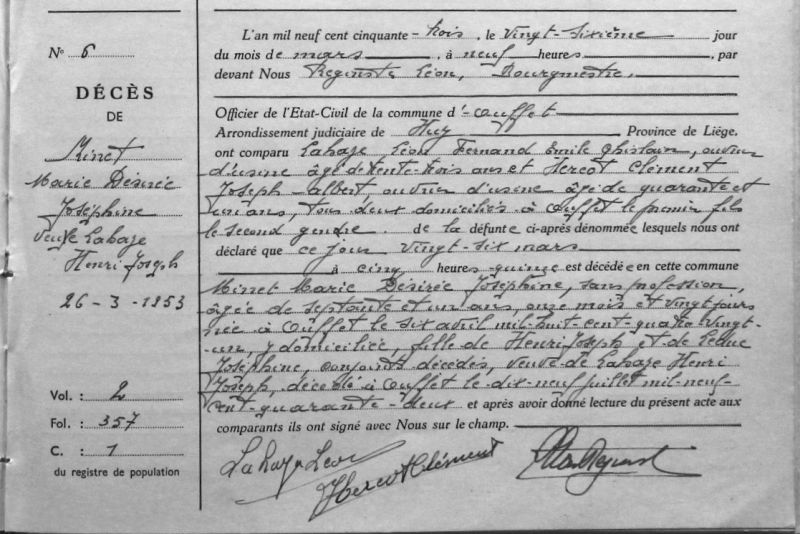 N° 6
DÉCÈS
DE
Minet
Marie Désirée
Joséphine
Veuve Lahaze
Henri Joseph
26-3-1953
Vol. : 2
Fol. : 357
C. : 1
du registre de population
L'an mil neuf cent cinquante-trois, le vingt-sixième jour
du mois de mars, à neuf heures, par
devant Nous Léon, Bourgmestre,
Officier de l'Etat-Civil de la commune d'Ouffet
Arrondissement judiciaire de Huy Province de Liége.
ont comparu Lahaye Léon Fernand Emile Ghislain, ouvrier
d'usine âgé de trente-trois ans et Hercot Clément
Joseph-Albert, ouvrier d'usine âgé de quarante et
un ans, tous deux domiciliés à Ouffet le premier fils
le second gendre de la défunte ci-après dénommée lesquels nous ont
déclaré que ce jour vingt-six mars
à cinq heures quinze est décédée en cette commune
Minet Marie Désirée Joséphine, sans profession,
âgée de septante et un ans, onze mois et vingt jours
née à Ouffet le six avril mil-huit-cent-quatre-vingt-
-un, y domiciliée, fille de Henri Joseph et de Leduc
Joséphine, conjoints décédés, veuve de Lahaye Henri
Joseph, décédé à Ouffet le dix-neuf juillet mil-neuf-
cent-quarante-deux et après avoir donné lecture du présent acte aux
comparants ils ont signé avec Nous sur le champ.
Lahaye Léon
Hercot Clément